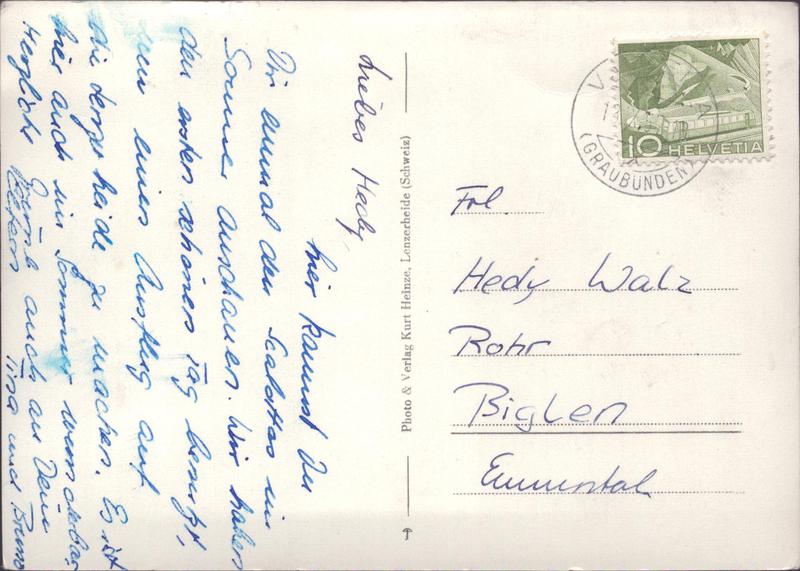 Liebes Hedy,
hier kannst Du
Dir einmal den Scalottas im
Sommer anschauen. Wir haben
den ersten schönen Tag benutzt,
um einen Ausflug auf
die Lenzerheide zu machen. Es ist
hier auch im Sommer wunderbar.
Herzliche Grüsse auch an Deine
Eltern Tina und Bruno
Photo & Verlag Kurt Heinze, Lenzerheide (Schweiz)
10 HELVETIA
(GRAUBÜNDEN)
Frl.
Hedy Walz
Rohr
Biglen
Emmental